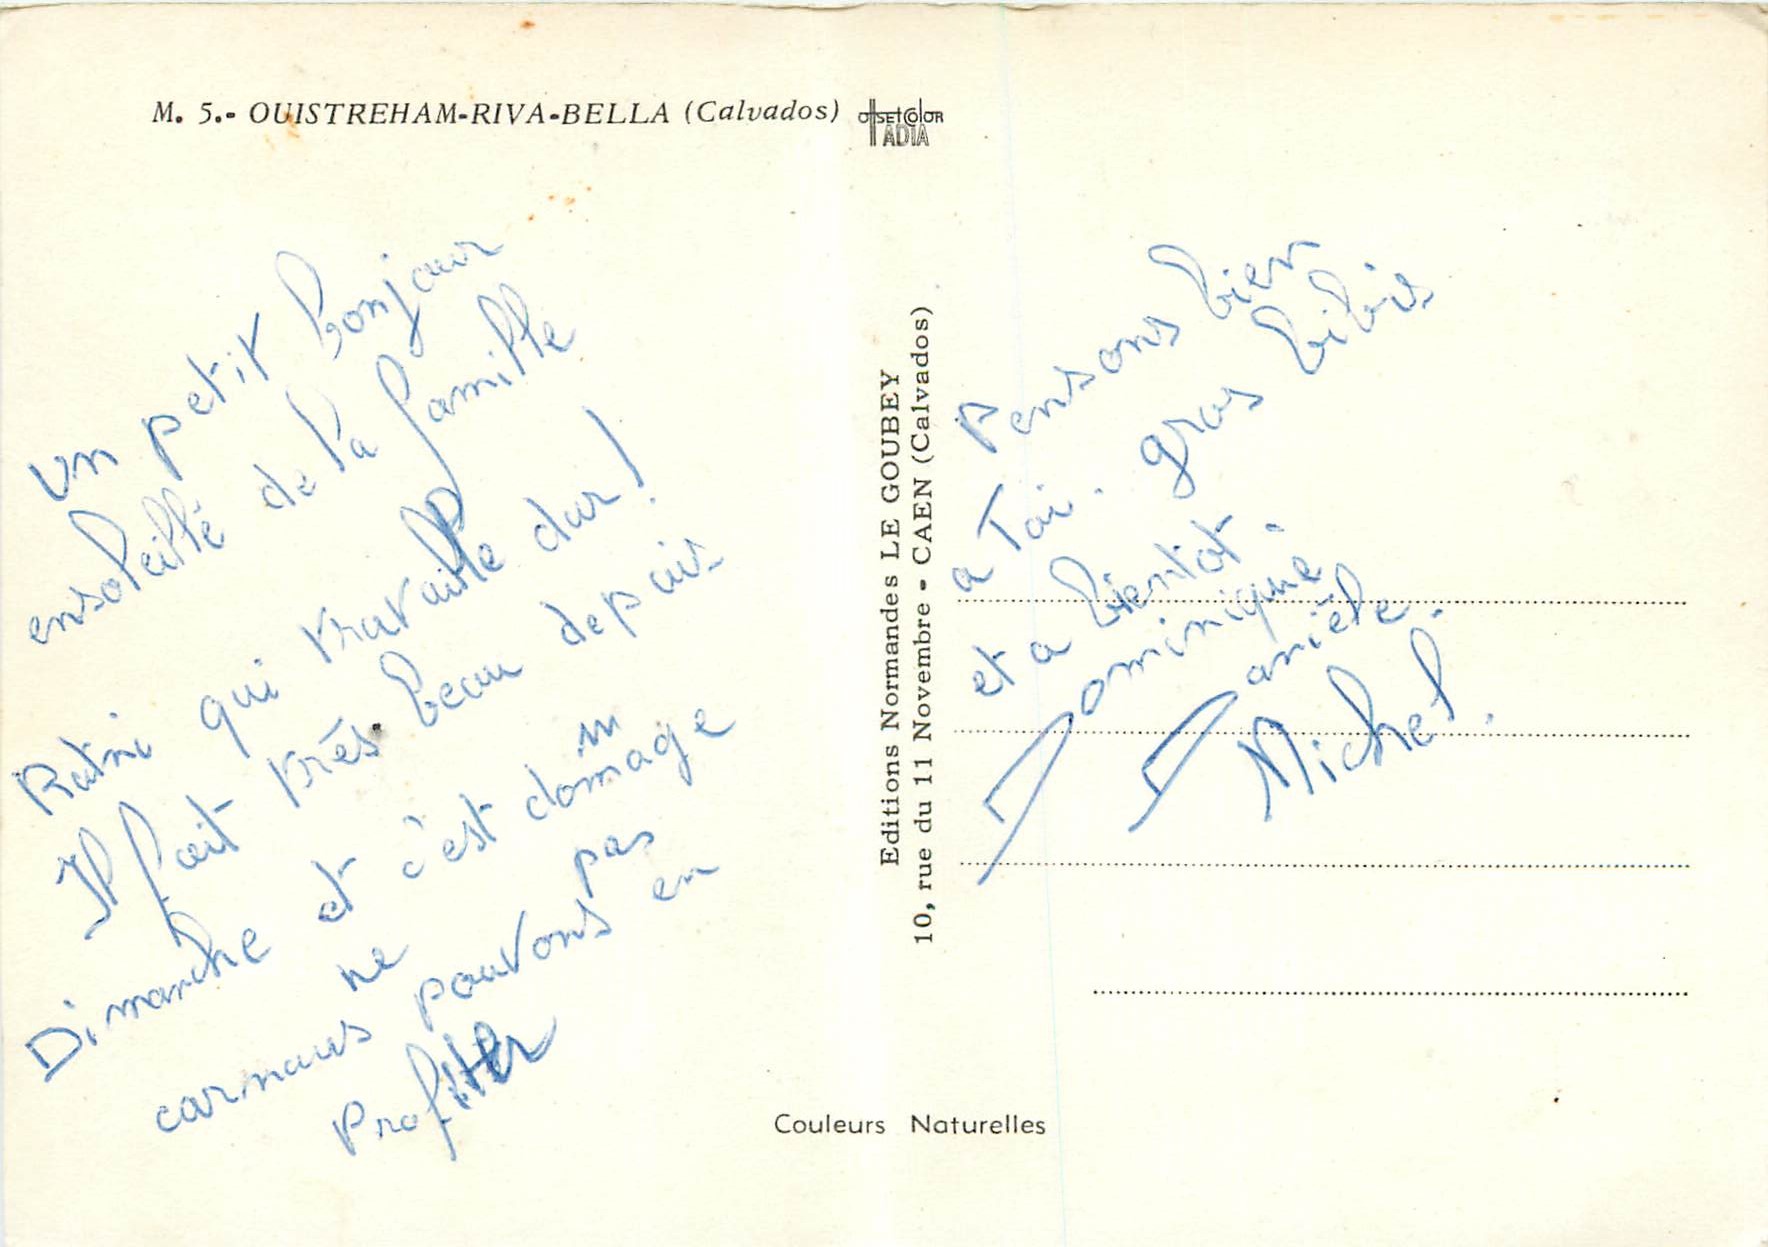 M. 5.- OUISTREHAM-RIVA-BELLA (Calvados)
offsetcolor
ADIA
Un petit bonjour
ensoleillé de la famille
qui travaille dur !
Il fait très beau depuis
Dimanche et c'est dommage
car nous ne pouvons pas en
profiter
Editions Normandes LE GOUBEY
10, rue du 11 Novembre - CAEN (Calvados)
Pensons bien
a Toi. gros bibis
et a bientot.
Dominique
Danièle.
Michel.
Couleurs Naturelles